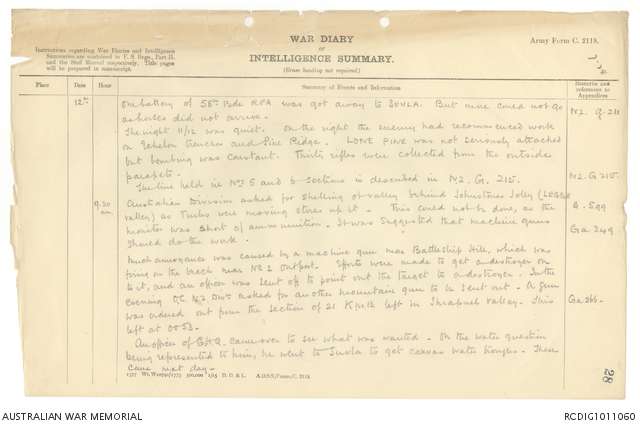 WAR DIARY
or
INTELLIGENCE SUMMARY.
(Erase heading not required)
Army Form C. 2118.
Instructions regarding War Diaries and Intelligence
Summaries are contained in F. S. Regs., Part II.
and the Staff Manual respectively. Title pages
will be prepared in manuscript.
Place
Date
Hour
Summary of Events and Information
Remarks and
references to
Appendices
12th
One battery of 58th Bde RFA was got away to SUVLA. But more could not go
as horses did not arrive.
NZ. G. 211
The night 11/12 was quiet. On the right the enemy had recommenced work
on Echelon trenches and Pine Ridge. LONE PINE was not seriously attacked
but bombing was constant. Thirty rifles were collected from the outside
parapets.
The line held in Nos 5 and 6 Sections is described in NZ. G. 215.
NZ. G 215.
9.20
am
Australian Division asked for shelling of valley behind Johnstones Jolly (LEGGE
valley) as Turks were moving stores up it. This could not be done, as the
G. 599
monitor was short of ammunition. It was suggested that machine guns
should do the work.
Ga 249
Much annoyance was caused by a machine gun near Battleship Hill, which was
firing on the beach near No 2 outpost. Efforts were made to get a destroyer on
to it, and an officer was sent off to point out the target to a destroyer. In the
evening the NZ Divn asked for another mountain gun to be sent out. A gun
was ordered out from the section of 21 Kohat left in Shrapnel Valley. This
Ga 266.
left at 0053.
An officer of GHQ came over to see what was wanted. On the water question
being represented to him, he went to Suvla to get canvas water troughs. These
came next day.
28
AUSTRALIAN WAR MEMORIAL
RCDIG1011060